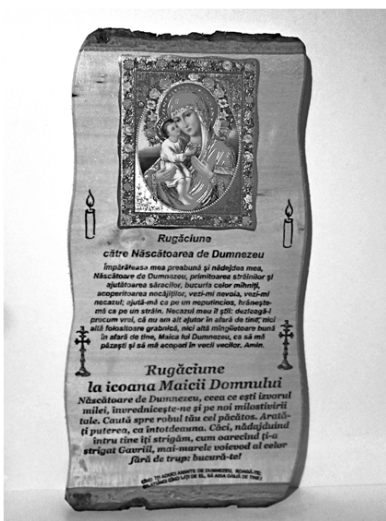 Rugăciune
către Născătoarea de Dumnezeu
Împărăteasa mea preabună și nădejdea mea,
Născătoare de Dumnezeu, primitoarea străinilor și
ajutătoarea săracilor, bucuria celor mîhniți,
acoperitoarea necăjiților, vezi-mi nevoia, vezi-mi
necazul; ajută-mă ca pe un neputincios, hrănește-
mă ca pe un străin. Necazul meu îl știi: dezleagă-l
precum vrei, că nu am alt ajutor în afară de tine, nici
altă folositoare grabnică, nici altă mîngîietoare bună
în afară de tine, Maica lui Dumnezeu, ca să mă
păzești și să mă acoperi în vecii vecilor. Amin.
Rugăciune
la icoana Maicii Domnului
Născătoare de Dumnezeu, ceea ce ești izvorul
milei, învrednicește-ne și pe noi milostivirii
tale. Caută spre robul tău cel păcătos. Arată-
ți puterea, ca întotdeauna. Căci, nădăjduind
întru tine îți strigăm, cum oarecînd ți-a
strigat Gavriil, mai-marele voievod al celor
fără de trup: bucură-te!